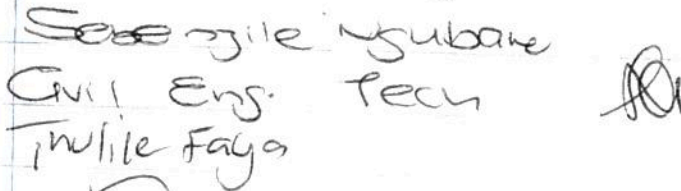 Senezile Ngubane
Civil Eng. Tech
Thulile Faya